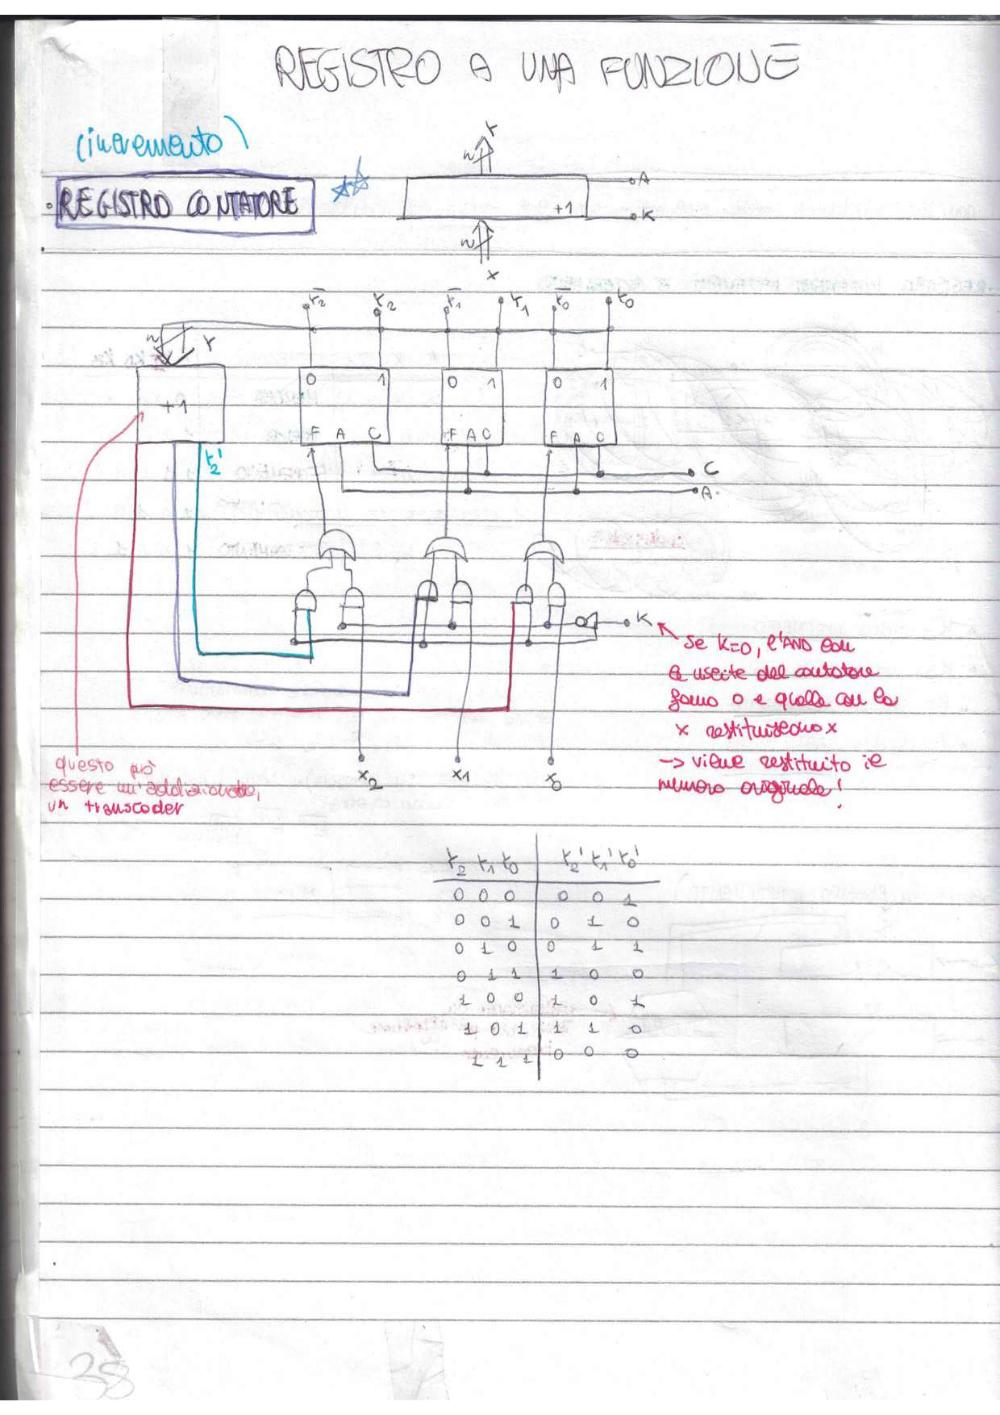 REGISTRO A UNA FUNZIONE
(incremento)
REGISTRO CONTATORE
Y
n
A
+1
K
n
x
Y̅2 Y2 Y̅1 Y1 Y̅0 Y0
n Y
0 1 0 1 0 1
+1
F A C F A C F A C
Y2'
C
A
K
Se K=0, l'AND con
le uscite del contatore
fanno 0 e quelle con le
x restituiscono x
-> viene restituito il
numero originale!
questo può
essere un addizionatore,
un transcoder
x2 x1 x0
Y2 Y1 Y0 Y2' Y1' Y0'
0 0 0 0 0 1
0 0 1 0 1 0
0 1 0 0 1 1
0 1 1 1 0 0
1 0 0 1 0 1
1 0 1 1 1 0
1 1 1 0 0 0
38